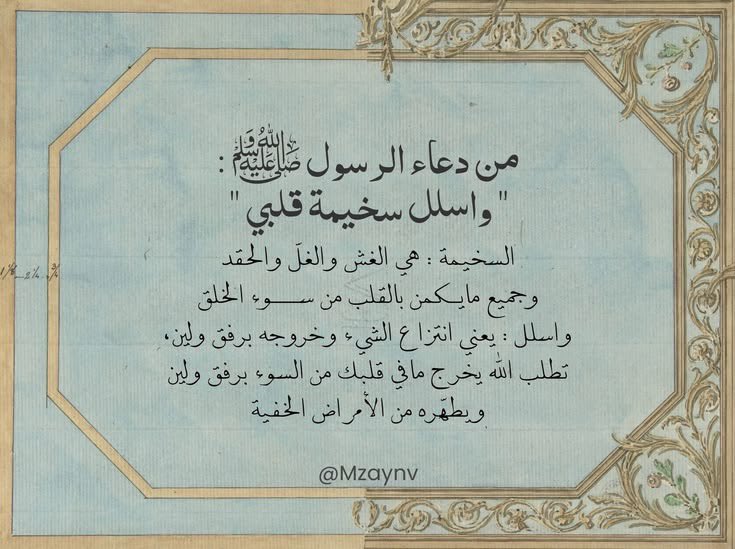 من دعاء الرسول ﷺ :
" واسلل سخيمة قلبي "
السخيمة : هي الغش والغلّ والحقد
وجميع مايكمن بالقلب من ســـوء الخلق
واسلل : يعني انتزاع الشيء وخروجه برفق ولين،
تطلب الله يخرج مافي قلبك من السوء برفق ولين
ويطهّره من الأمراض الخفية
@Mzaynv